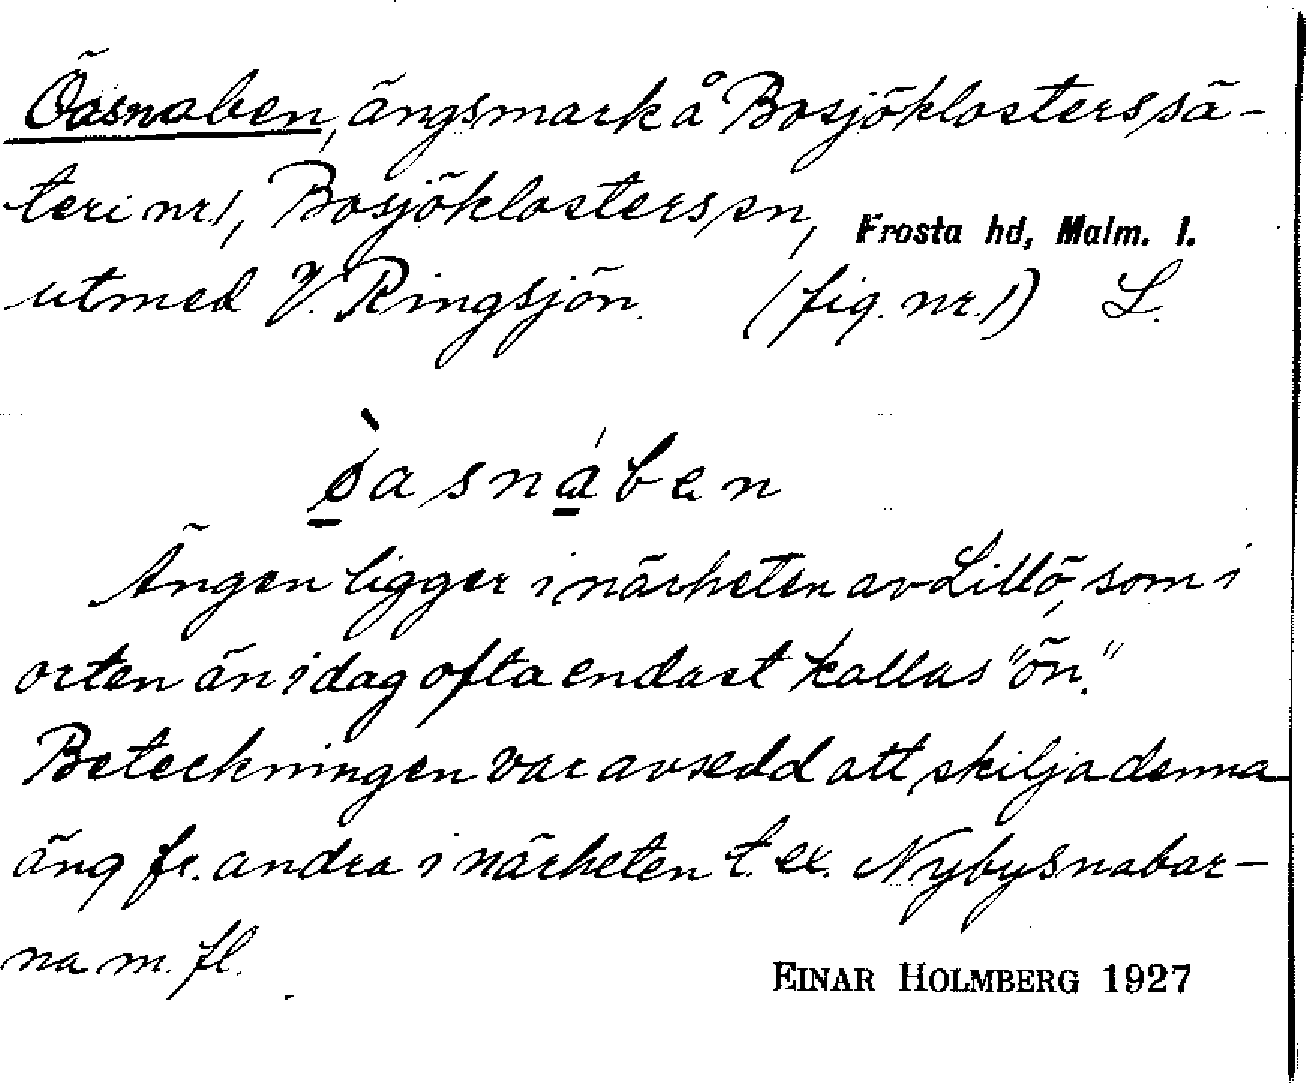 Öasnaben, ängsmark å Bosjöklosters sä-
teri nr 1, Bosjöklosters sn, Frosta hd, Malm. l.
utmed V. Ringsjön. (fig. nr. 1) L.
ø̀asnáben
Ängen ligger i närheten av Lillö, som i
orten än idag ofta endast kallas "ön".
Beteckningen var avsedd att skilja denna
äng fr. andra i närheten t. ex. Nybysnabar-
na m. fl.
EINAR HOLMBERG 1927